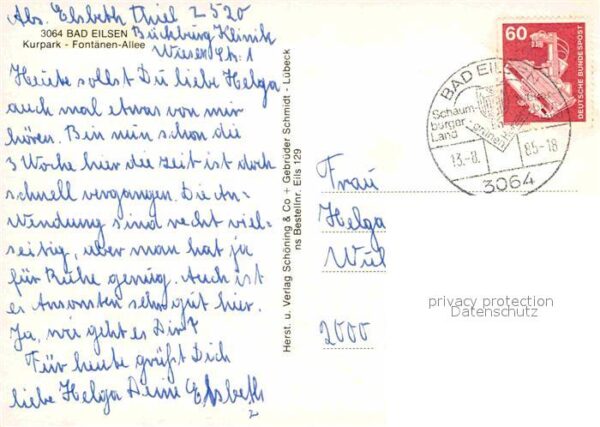 Abs. Elsbeth Thiel Z 520
3064 BAD EILSEN
Kurpark - Fontänen-Allee
Bückburg Klinik
Wieser Str. 1
Heute sollst Du liebe Helga
auch mal etwas von mir
hören. Bin nun schon die
3 Woche hier die Zeit ist doch
schnell vergangen. Die An-
wendung sind recht viel-
seitig, aber man hat ja
für Ruhe genug. Auch ist
es Ansonsten sehr gut hier.
Ja, wie geht es Dir?
Für heute grüßt Dich
liebe Helga Deine Elsbeth
Herst. u. Verlag Schöning & Co + Gebrüder Schmidt - Lübeck
ns Bestellnr. Eils 129
60
DEUTSCHE BUNDESPOST
BAD EILSEN
Schaum-
burger
Land
13.-8. 85-18
3064
Frau
Helga
Wul
2000
privacy protection
Datenschutz